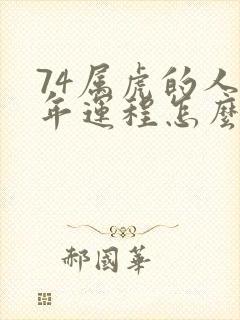 74属虎的人
年运程怎麽
郝國華